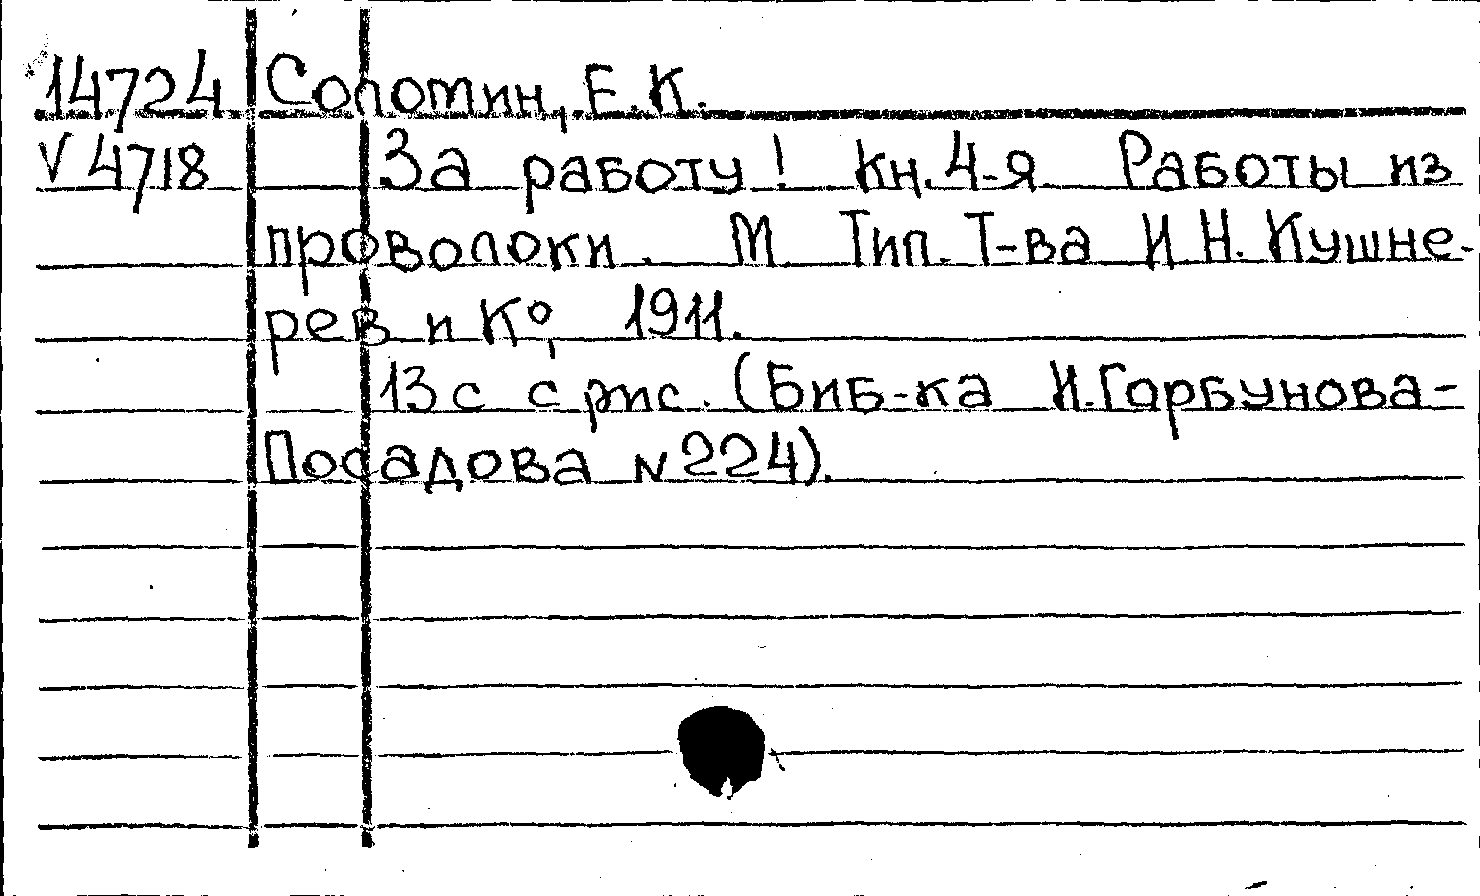 14724 Соломин, Е.К.
V 4718 За работу! Кн. 4-я Работы из
проволоки. М. Тип. Т-ва И.Н. Кушне-
рев и Кº, 1911.
13 с с рис. (Биб-ка И. Горбунова-
Посадова N 224).